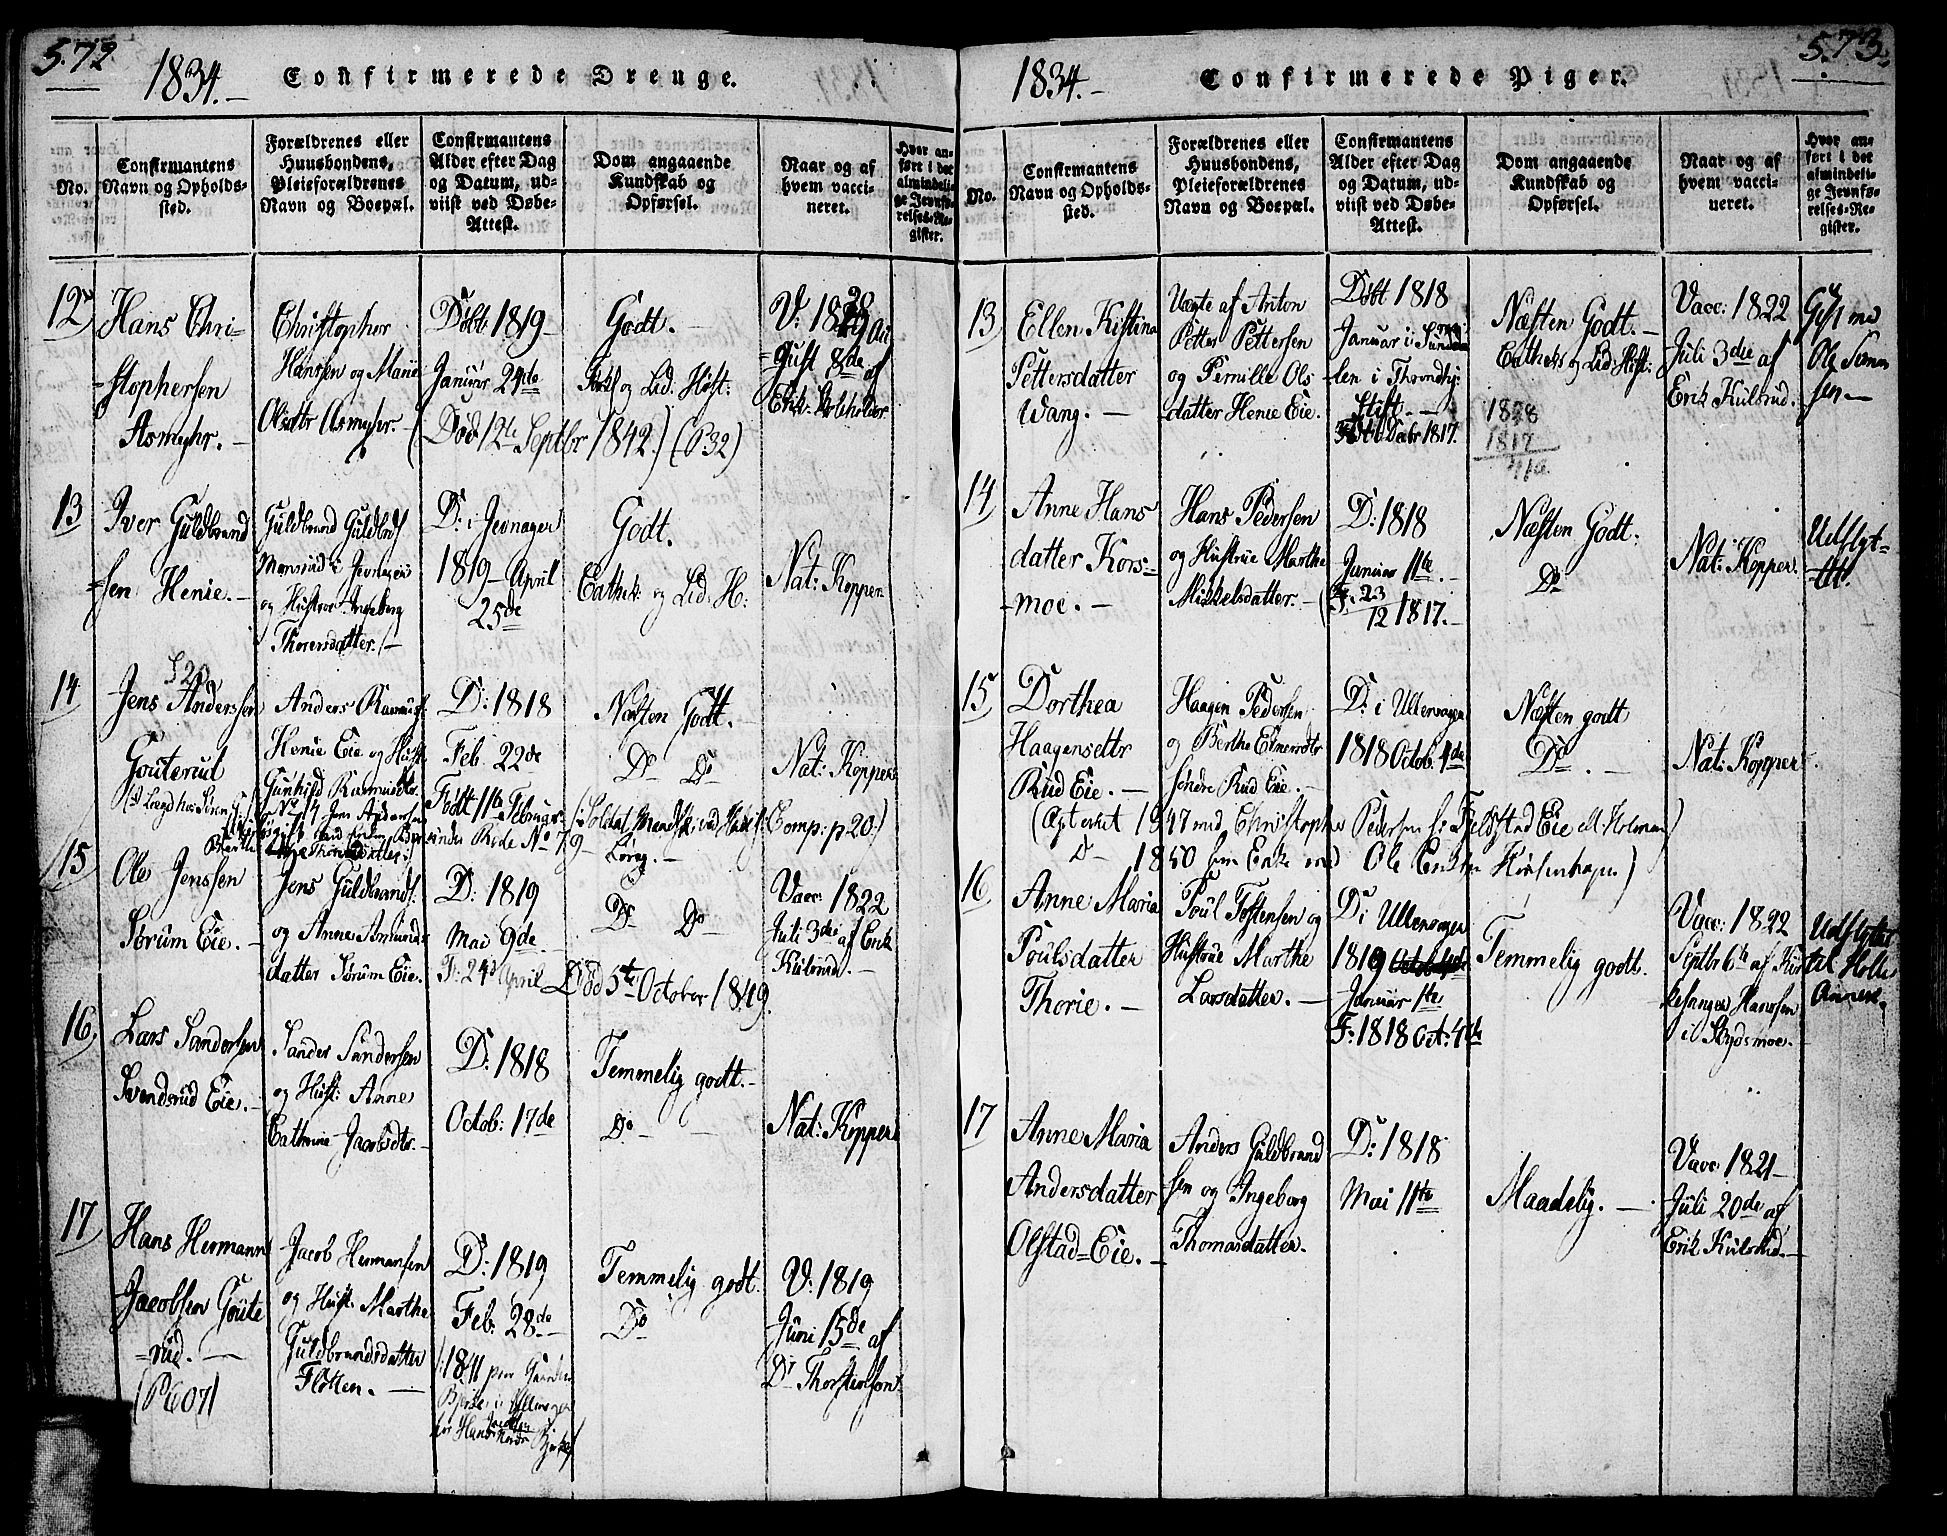 572
1834.-
Confirmerede Drenge.
No.
Confirmantens
Navn og Opholds-
sted.
Forældrenes eller
Huusbondens,
Pleieforældrenes
Navn og Boepæl.
Confirmantens
Alder efter Dag
og Datum, ud-
viist ved Døbe-
Attest.
Dom angaaende
Kundskab og
Opførsel.
Naar og af
hvem vacci-
neret.
Hvor an-
ført i det
almindeli-
ge Jevnfø-
relses-Re-
gister.
12
Hans Chri-
-stophersen
Asmyhr.-
Christopher
Hanssen og Marie
Olsdtr Asmyhr.-
Døbt 1819-
Januar 24de
(Død 12te Septbr 1842.) (P32)
Godt.-
og Lid. Høft:
V: 18
gust 8de af
Erik
13
Iver Guldbrand
=sen Henie.-
Guldbrand Guldbrds
i Jevnager
og Hustroe Ingeborg
Thoresdatter.
D: i Jevnager
1819-April
25de
Godt.
Cathek: og Lid. H:
Nat: Kopper
14
Jens Anderssen
Gouterud
Anders Rasmuss.
Henie Eie og Hust:
Gunhild Rasmusdtr.
D: 1818
Feb. 22de
Født 11te Februar
Næsten Godt.-
Do Do
Nat: Kopper
Comp: p 20:)
15
Ole Jenssen
Sørum Eie.-
Jens Guldbrands.
og Anne Amunds-
datter Sørum Eie.
D: 1819
Mai 9de
F: 24de April
Død 5te October 1849.
Do Do
Vacc: 1822
Juli 3die af Erik
Kulsrud.-
16
Lars Sandersen
Svendsrud Eie.-
Sander Sandersen
og Hust: Anne
Cathrine Jacobsdtr.-
D: 1818
Octob: 17de
Temmelig godt.-
Do-
Nat: Kopper
17
Hans Hermann
Jacobsen Goute
=rud.-
(P607)
Jacob Hermansen
og Hust. Marthe
Guldbrandsdatter
Fløtten.-
D: 1819
Feb: 28de-
/:1841 paa
i Ullensager
hos
Temmelig godt.
Do
V: 1819
Juni 15de af
Dr Thorstensen.
573.
1834.-
Confirmerede Piger.
No.
Confirmantens
Navn og Opholds-
sted.
Forældrenes eller
Huusbondens,
Pleieforældrenes
Navn og Boepæl.
Confirmantens
Alder efter Dag
og Datum, ud-
viist ved Døbe-
Attest.
Dom angaaende
Kundskab og
Opførsel.
Naar og af
hvem vacci-
neret.
Hvor an-
ført i det
almindeli-
ge Jevnfø-
relses-Re-
gister.
13
Ellen Kistina
Pettersdatter
Wang.-
Uægte af Anton
Petter Pettersen
og Pernille Ols
datter Henie Eie.
Døbt 1818
Januar i
-len i Throndhj:
Stift.-
Decbr 1817.
Næsten Godt.-
Catheks og Lid. Høft:
1817
Vacc: 1822
Juli 3die af
Erik Kulsrud.
Gift med
Ole
sen-
14
Anne Hans
datter Kors=
=moe.-
Hans Pedersen
og Hustrue Marthe
Mikkelsdatter.-
D: 1818
Januar 11te.-
(F. 23/12 1817.-
Næsten Godt:
Do
Nat: Kopper.
Udflyt-
tet.
15
Dorthea
Haagensdtr
Rud Eie.-
Haagen Pedersen
og Berthe Einersdtr
søndre Rud Eie.-
D: i Ullensager
1818 Octob. 4de
Næsten godt
Do.-
Nat: Kopper.
(Ægt 1847 med Christopher Pedersen fr Fjelstad Eie
Do 1850 som Enke med Ole
16
Anne Maria
Poulsdatter
Thorie.-
Poul Tostensen og
Hustrue Marthe
Larsdatter.-
D: i Ullensager
1819 Octob 4de
Januar 1te
F: 1818 Oct: 4de
Temmelig godt.
Vacc: 1822
Septbr 6te af Kir
kesanger Hanssen
i
Udflyttet
til Holter
Annex.
17
Anne Maria
Andersdatter
Olstad=Eie.-
Anders Guldbrand
sen og Ingeborg
Thomasdatter.
D: 1818
Mai 11te
Maadelig.-
Vacc: 1821-
Juli 20de af
Erik Kulsrud.-